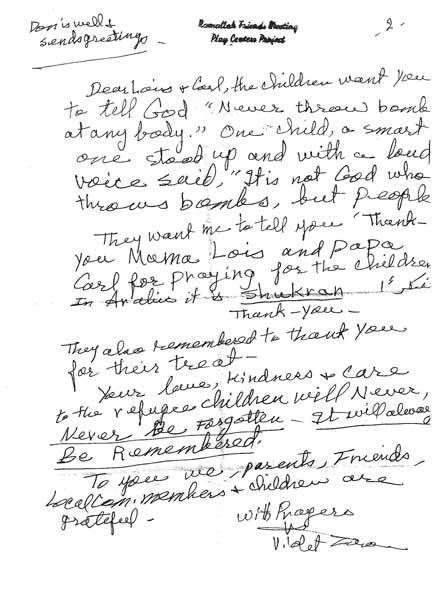 Don is well &
sends greetings
Ramallah Friends Meeting
Play Centers Project
- 2 -
Dear Lois & Carl, the children want you
to tell God "Never throw bomb
at any body." One child, a smart
one stood up and with a loud
voice said, "It is not God who
throws bombs, but people
They want me to tell you "Thank-
you Mama Lois and Papa
Carl for praying for the children"
In Arabic it is Shukran شكرا
Thank-you-
They also remembered to thank you
for their treat-
Your love, kindness & care
to the refugee children will Never,
Never Be Forgotten - It will always
Be Remembered.
To you we, parents, Friends,
Local Com. members & children are
grateful -
With Prayers
Violet